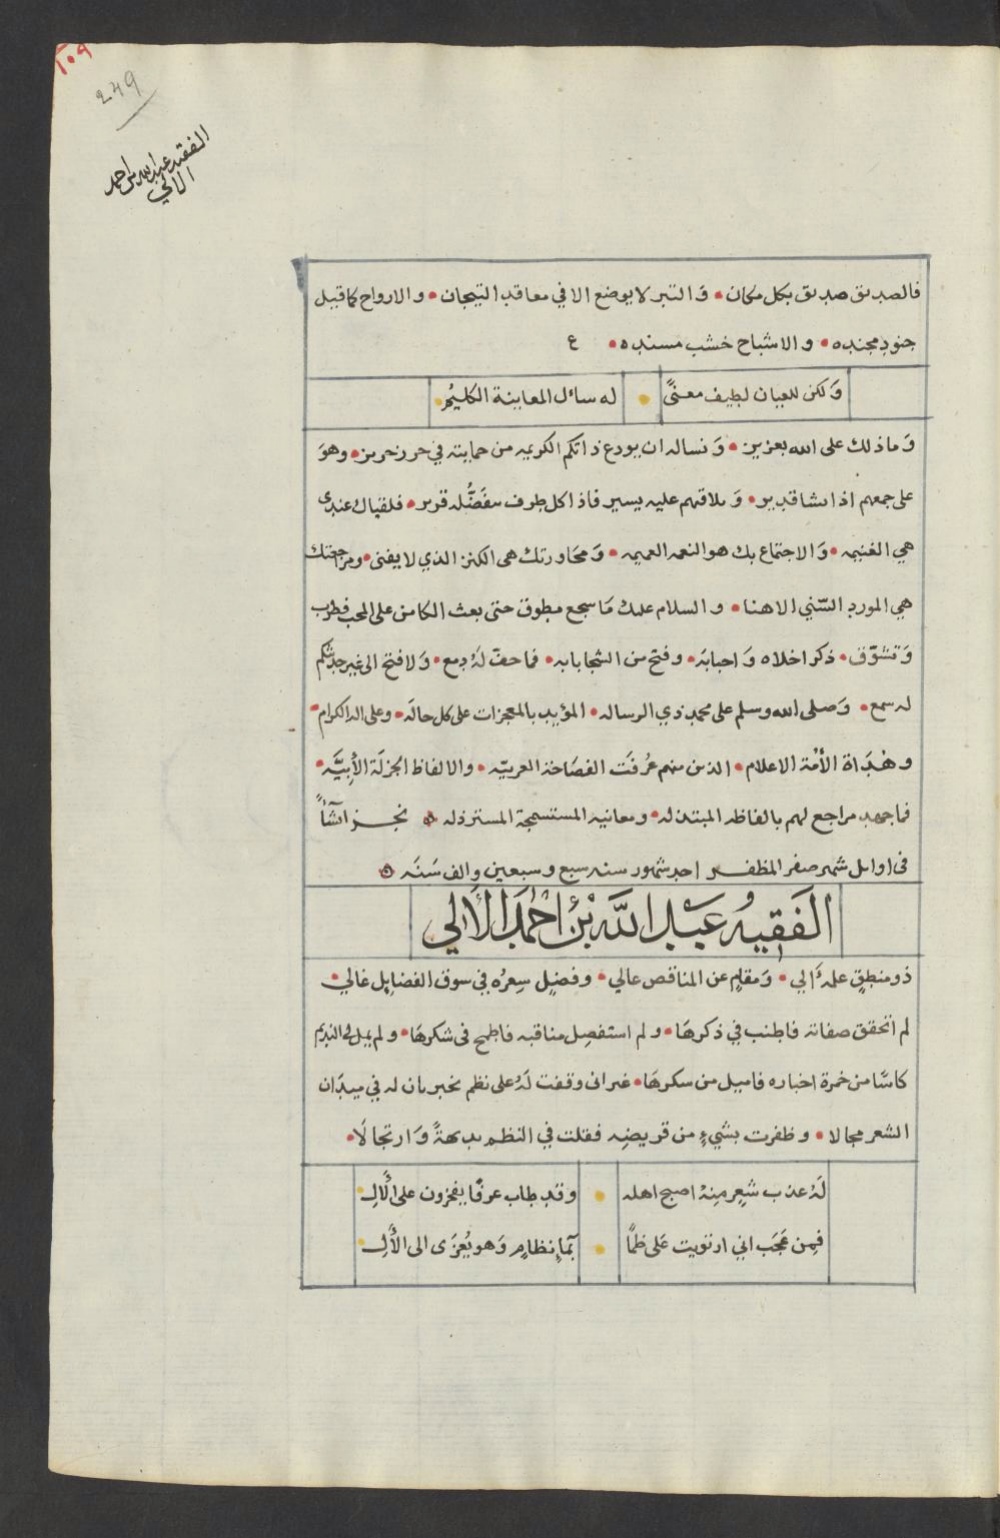 ١٠٩
249
الفقيه عبدالله بن احمد
الالي
فالصديق صديق بكل مكان • وَالتبر لا يوضع الا في معاقد التيجان • والارواح كما قيل
جنود مجنده • والاشباح خشب مسنده • ع
وَلكن للعيان لطيف معنىً • له سائل المعاينة الكليمُ •
وَما ذلك على الله بعزيز • وَنساله ان يودع ذاتكم الكريمه من حمايته في حرز حريز • وهوَ
على جمعهم اذا يشا قدير • وَ عليه يسير فاذا كل طرف قرير • فلقياك عندى
هي الغنيمه • وَالاجتماع بك هو النعمه العميمه • وَمحاورتك هى الكنز الذي لا يفنى • ومراجعتك
هي المورد السّني الاهنا • والسلام عليك مَا سجع مطوق حتى بعث الكامن على المحب فطرب
وَتشوّق • ذكر اخلاه وَاحبابَه • وفتح من الشجا بابه • فما جفّ لهُ دمع • وَلا فتح الى غير حديثكم
له سمع • وَصلى الله وسلم على محمد ذي الرساله • المؤيد بالمعجزات على كل حالَه • وعلى اله الكرام •
وهُدَاة الأمّة الاعلام • الذين منهم عُرفَت الفصَاحة العربيّه • والالفاظ الجزلَة الأبِيَّه •
فما جهد مراجع لهم بالفاظه المبتذله • ومعانيه المستسمجة المسترذله نجز انشآءً
فى اوايل شهر صفر المظفر احد شهور سنه سبع وسبعين والف سَنَه
الفَقِيهُ عَبدُ اللَّه بْنُ احْمَدَ الأَالِي
ذو منطقٍ عليهُ أَالي • وَمقامٍ عن المناقص عالي • وفضلٍ سِعرُه في سوق الفضايل غالي •
لم اتحقق صفاته فاطنب في ذكرهَا • ولم استفصل مناقبه فاطمح فى شكرهَا • ولم يمل لي النديم
كاسًا من خمرة اخباره فاميل من سكرهَا • غير انى وقفت لهُ على نظم يخبر بان له في ميدَان
الشعر مجالا • وظفرت بشيءٍ من قريضه فقلت في النظم بديهةً وَارتجالًا •
لَهُ عذب شِعرٍ مِنهُ اصبح اهله • وقد طاب عرفًا يفخرون على الآلِ •
فمِن عَجَب اني ارتويت عَلى ظمًا • بمآءِ نظامٍ وَهو يُعزَى الى الأَلِ •